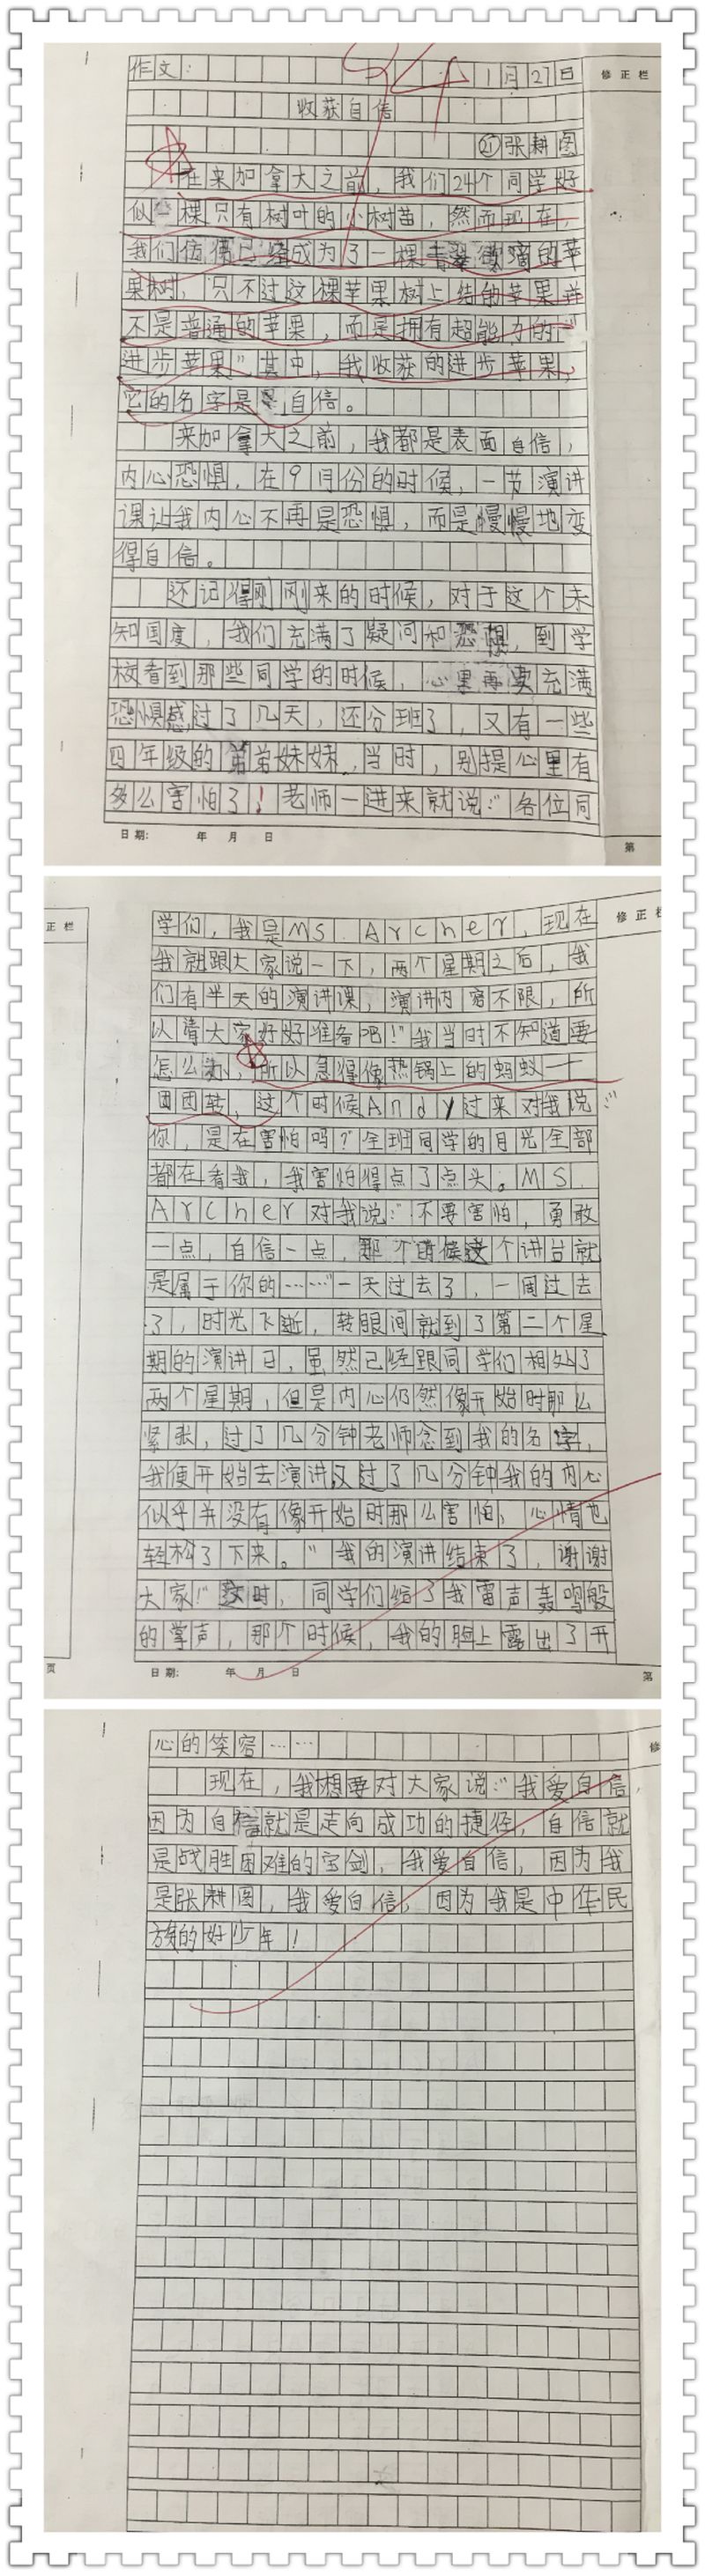 作文： 1月27日 修正栏
收获自信
㉑张耕图
在来加拿大之前，我们24个同学好
似一棵只有树叶的小树苗，然而现在，
我们仿佛已经成为了一棵青翠欲滴的苹
果树，只不过这棵苹果树上结的苹果并
不是普通的苹果，而是拥有超能力的“
进步苹果”。其中，我收获的进步苹果，
它的名字是：自信。
来加拿大之前，我都是表面自信，
内心恐惧，在9月份的时候，一节演讲
课让我内心不再是恐惧，而是慢慢地变
得自信。
还记得刚刚来的时候，对于这个未
知国度，我们充满了疑问和恐惧，到学
校看到那些同学的时候，心里再要充满
恐惧感，过了几天，还分班了，又有一些
四年级的弟弟妹妹，当时，别提心里有
多么害怕了！老师一进来就说：“各位同
日期： 年 月 日 第
正栏
学们，我是MS．Archer，现在 修正栏
我就跟大家说一下，两个星期之后，我
们有半天的演讲课，演讲内容不限，所
以请大家好好准备吧！”我当时不知道要
怎么办，所以急得像热锅上的蚂蚁一十
团团转，这个时候Andy过来对我说：“
你，是在害怕吗？”全班同学的目光全部
都在看我，我害怕得点了点头。MS．
Archer对我说：“不要害怕，勇敢
一点，自信一点，那个时候这个讲台就
是属于你的……”一天过去了，一周过去
了，时光飞逝，转眼间就到了第二个星
期的演讲日，虽然已经跟同学们相处了
两个星期，但是内心仍然像开始时那么
紧张，过了几分钟老师念到我的名字，
我便开始去演讲，又过了几分钟我的内心
似乎并没有像开始时那么害怕，心情也
轻松了下来。“我的演讲结束了，谢谢
大家！”这时，同学们给了我雷声轰鸣般
的掌声，那个时候，我的脸上露出了开
页 日期： 年 月 日 第
心的笑容…… 修
现在，我想要对大家说：“我爱自信，
因为自信就是走向成功的捷径，自信就
是战胜困难的宝剑，我爱自信，因为我
是张耕图，我爱自信，因为我是中华民
族的好少年！